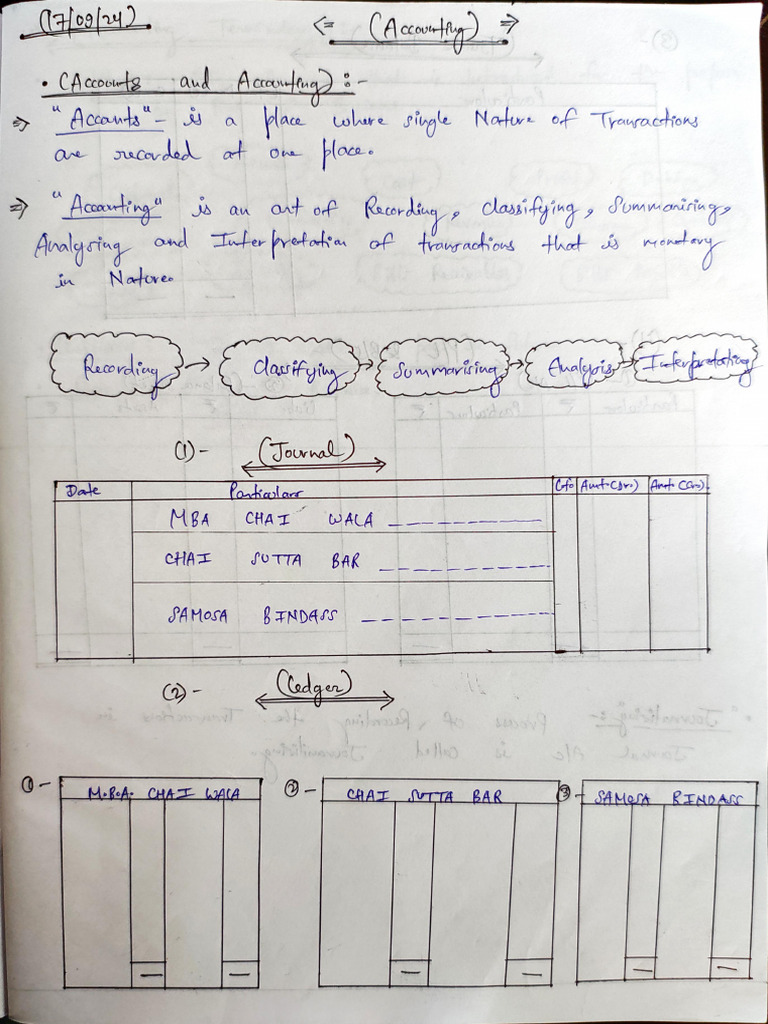 17/09/24
(Accounting)
• (Accounts and Accounting) :-
⇒ "Accounts" - is a place where single Nature of Transactions
are recorded at one place.
⇒ "Accounting" is an art of Recording, Classifying, Summarising,
Analysing and Interpretation of transactions that is monetary
in Nature.
Recording → Classifying → Summarising → Analysis → Interpretating
(1) - (Journal)
Date Particulars Amt(Dr.) Amt(Cr.)
MBA CHAI WALA
CHAI SUTTA BAR
SAMOSA BINDASS
(2) - (Ledger)
① - M.B.A. CHAI WALA ② - CHAI SUTTA BAR ③ - SAMOSA BINDASS